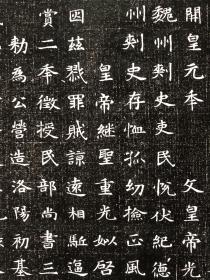 開皇元年 文皇帝光
魏州刺史吏民悅伏紀德
州刺史存恤孤幼撿正風
皇帝繼聖重光以啓
因茲戮罪賊諒遠相駈逼
賞二年徵授民部尚書三
勑為公營造洛陽初基